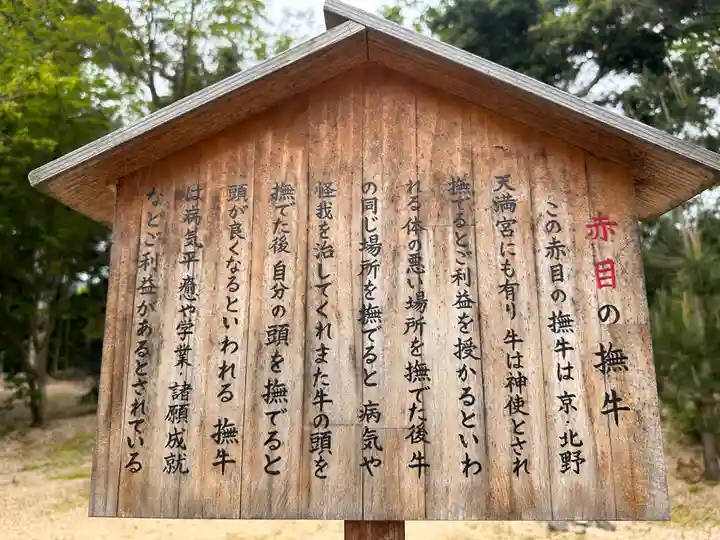 赤目の撫牛
この赤目の撫牛は京・北野
天満宮にも有り牛は神使とされ
撫でるとご利益を授かるといわ
れる体の悪い場所を撫でた後牛
の同じ場所を撫でると病気や
怪我を治してくれまた牛の頭を
撫でた後自分の頭を撫でると
頭が良くなるといわれる 撫牛
は病気平癒や学業 諸願成就
などご利益があるとされている